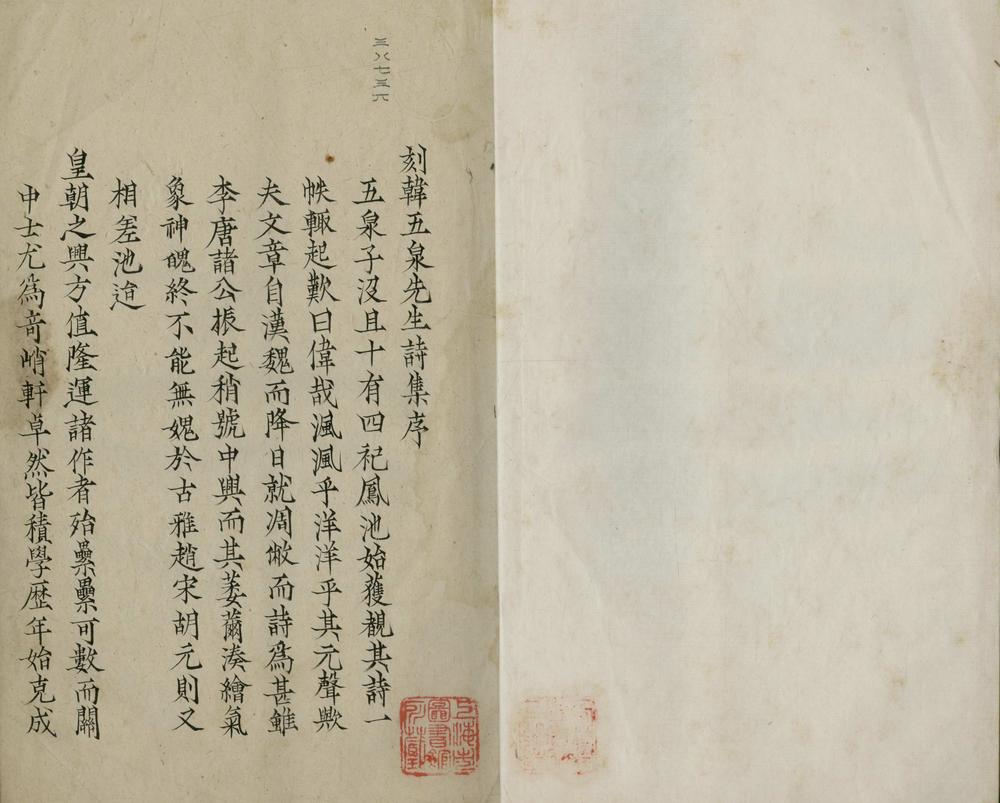 三八七五六
刻韓五泉先生詩集序
五泉子沒且十有四祀鳳池始獲覩其詩一
帙輙起歎曰偉哉渢渢乎洋洋乎其元聲歟
夫文章自漢魏而降日就凋俶而詩爲甚雖
李唐諸公振起稍號中興而其萎薾湊繪氣
象神魄終不能無媿於古雅趙宋胡元則又
相差池迨
皇朝之興方值隆運諸作者殆纍纍可數而關
中士尤爲奇峭軒卓然皆積學歷年始克成
上海市圖書館所藏